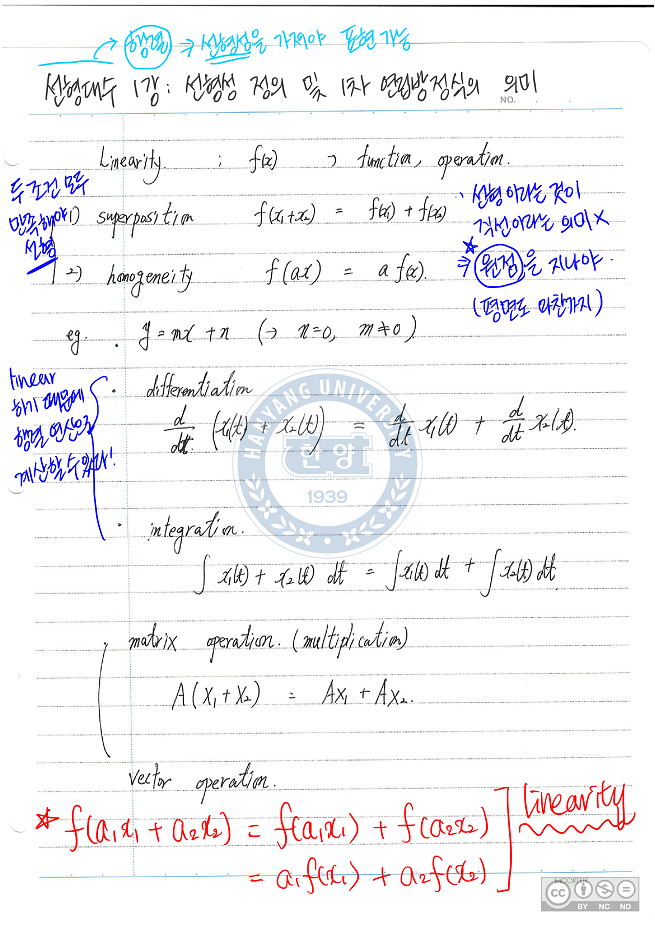 → 행렬 → 선형성을 가져야 표현 가능
선형대수 1강 : 선형성 정의 및 1차 연립방정식의 의미
NO.
Linearity : f(x) → function, operation.
두 조건 모두
만족해야
선형
1) superposition f(x₁+x₂) = f(x₁) + f(x₂)
2) homogeneity f(ax) = a f(x).
· 선형이라는 것이
직선이라는 의미 X
★
⇒ 원점을 지나야.
(평면도 마찬가지)
eg. · y = mx + n (→ n=0, m≠0)
linear
하기 때문에
행렬 연산으로
계산할 수 있다!
· differentiation
d/dt (x₁(t) + x₂(t)) = d/dt x₁(t) + d/dt x₂(t).
HANYANG UNIVERSITY
한양
1939
· integration.
∫ x₁(t) + x₂(t) dt = ∫x₁(t) dt + ∫x₂(t) dt.
· matrix operation. (multiplication)
A(x₁+x₂) = Ax₁ + Ax₂.
vector operation.
★ f(a₁x₁ + a₂x₂) = f(a₁x₁) + f(a₂x₂)
= a₁f(x₁) + a₂f(x₂)
linearity
cc BY NC ND